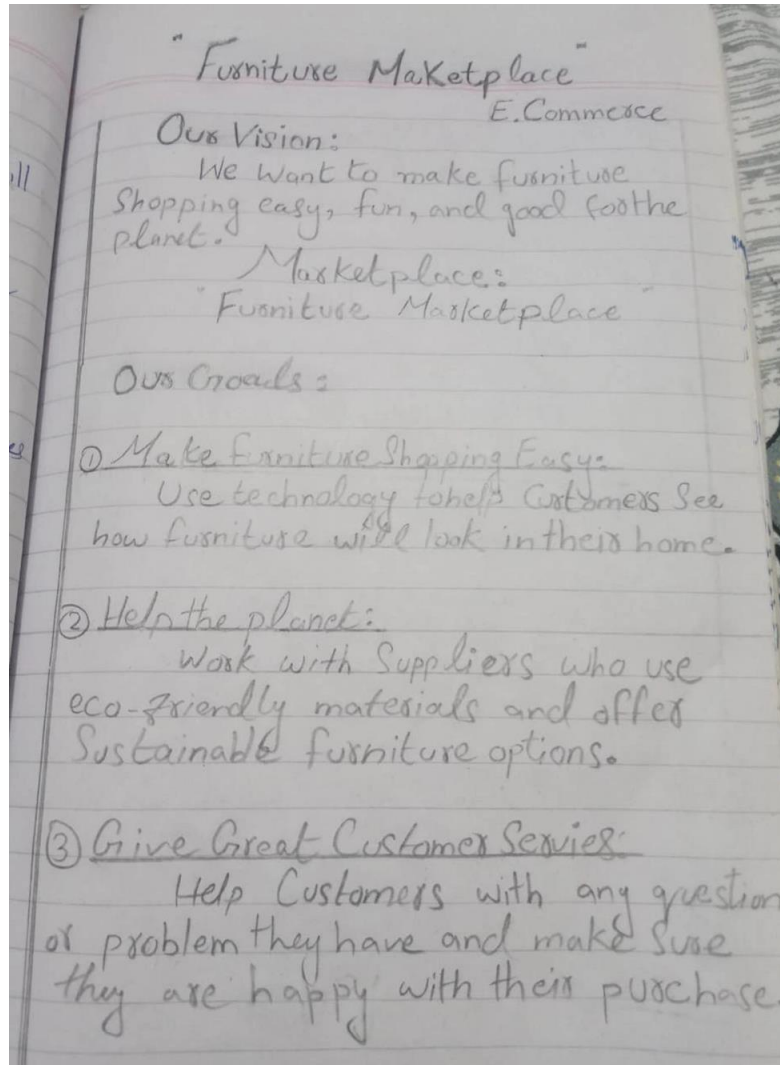 "Furniture Maketplace"
E.Commerce
Our Vision:
We want to make furniture
Shopping easy, fun, and good for the
planet.
Marketplace:
"Furniture Marketplace"
Our Goals:
① Make Furniture Shopping Easy:
Use technology to help Customers See
how furniture will look in their home.
② Help the planet:
Work with Suppliers who use
eco-friendly materials and offer
Sustainable furniture options.
③ Give Great Customer Servies:
Help Customers with any question
or problem they have and make Sure
they are happy with their purchase